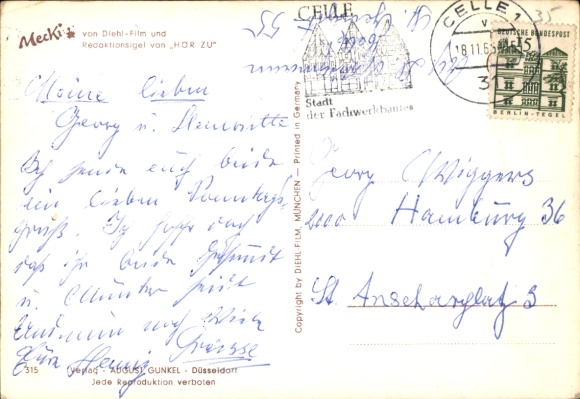 Mecki von Diehl-Film und
Redaktionsigel von „HÖR ZU"
Meine lieben
Georg u. Henriette
Ich sende euch beide
ein lieben Sonntags-
gruß. Ich hoffe doch
daß ihr beide Gesund
u. Munter seit
Und nun noch Viele
Grüsse
315 Verlag - AUGUST GUNKEL - Düsseldorf
Jede Reproduktion verboten
Copyright by DIEHL FILM, MÜNCHEN — Printed in Germany
CELLE
Stadt
der Fachwerkbauten
55
CELLE 1
18.11.65
31
35
DEUTSCHE BUNDESPOST
15
BERLIN-TEGEL
Georg Wiggers
2000 Hamburg 36
St. Anscharplatz 3